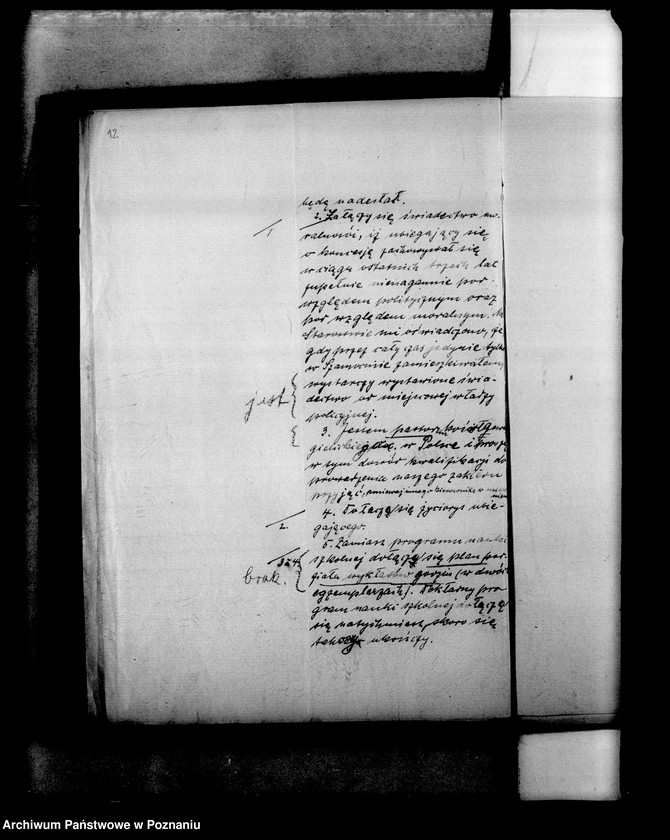 12
będą nadesłał.
2. Załączy się świadectwo mo-
ralności, iż ubiegający się
o koncesją zachowywał się
w ciągu ostatnich trzech lat
zupełnie nienagannie pod
względem politycznym oraz
pod względem moralnym. Na
Starostwie mi oświadczono, że
gdy przez cały czas jedynie tylko
w Szamocinie zamieszkiwałem,
wystarczy wystawione świa-
dectwo od miejscowej władzy
policyjnej.
3. Jestem pastorem
w Polsce i proszę
w tym dowód kwalifikacji do
prowadzenia naszego zakładu
przyjąć,
4. Dołącza się życiorys ubie-
gającego.
5. Zamiast programu nauki
szkolnej dołączą się plan
wykładów godzin (w dwóch
egzemplarzach). Dokładny pro-
gram nauki szkolnej dołączą
się natychmiast, skoro się
ukończy.
1
jest
2.
3 i 4
brak.
Archiwum Państwowe w Poznaniu